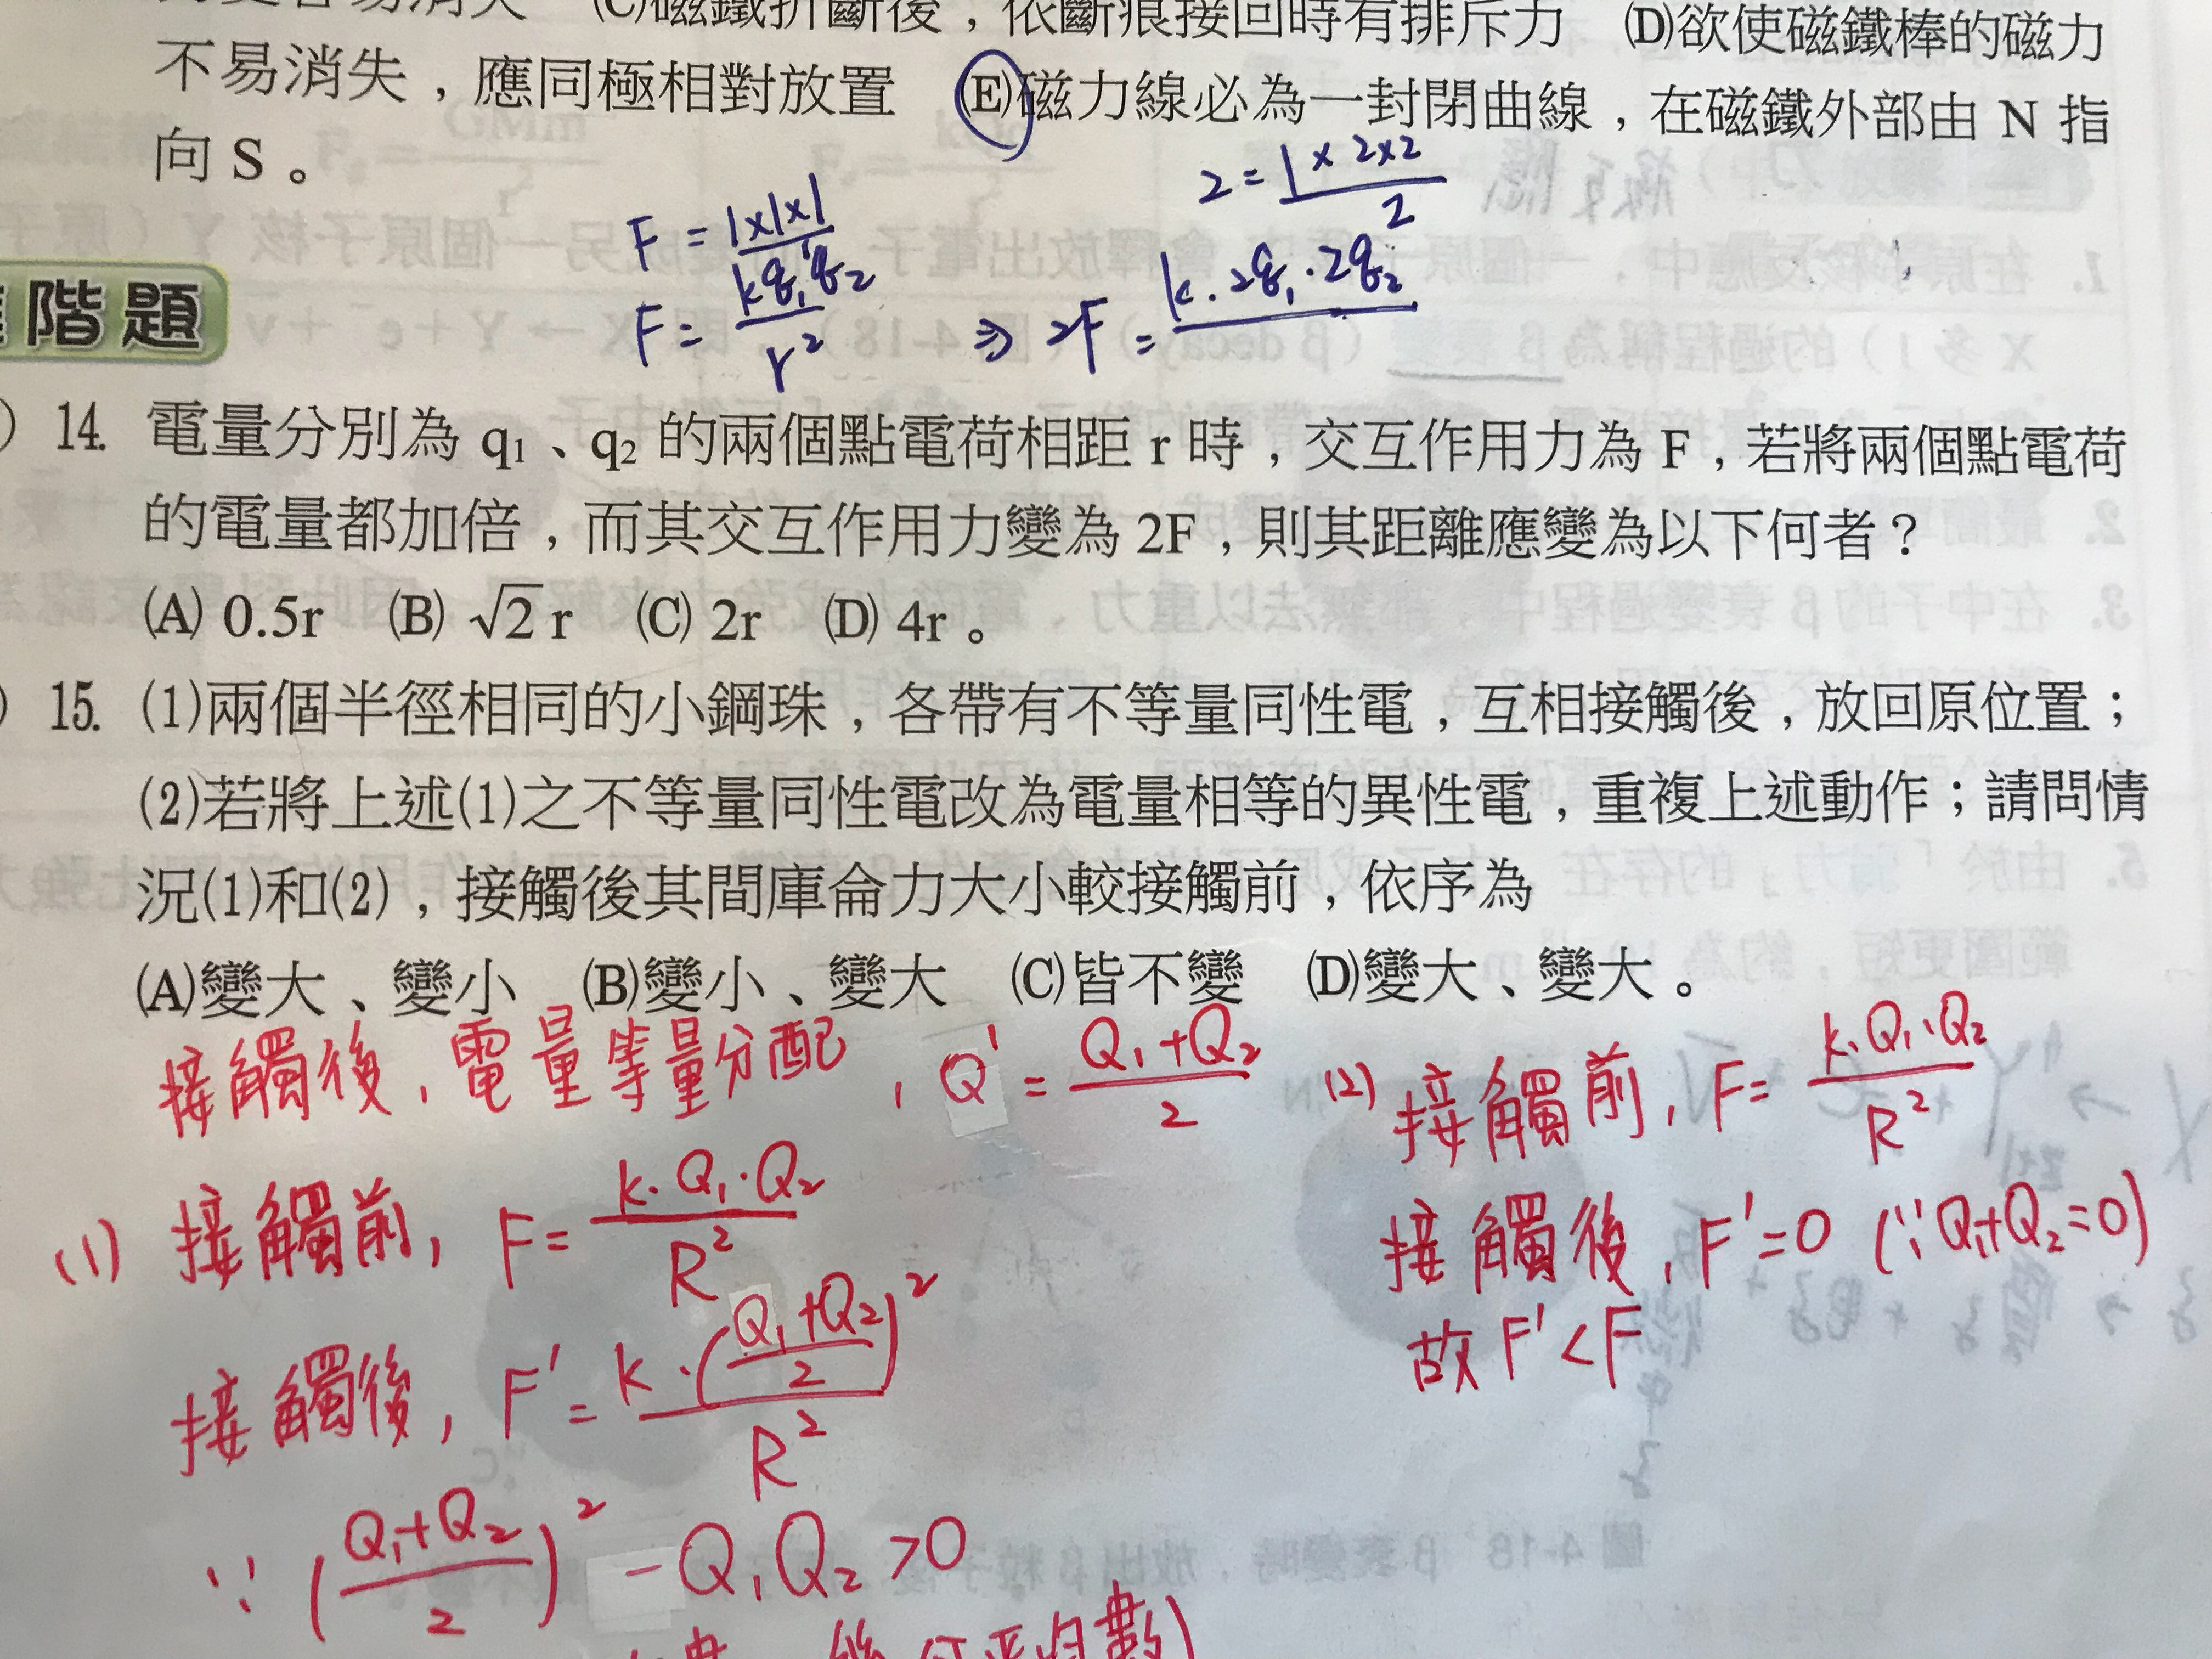 (C)磁鐵折斷後，依斷痕接回時有排斥力 (D)欲使磁鐵棒的磁力
不易消失，應同極相對放置 (E)磁力線必為一封閉曲線，在磁鐵外部由 N 指
向 S。
F = 1×1×1
2 = 1 × 2×2 / 2
F = kq₁q₂ / r² ⇒ 2F = k·2q₁·2q₂
階題
14. 電量分別為 q₁、q₂ 的兩個點電荷相距 r 時，交互作用力為 F，若將兩個點電荷
的電量都加倍，而其交互作用力變為 2F，則其距離應變為以下何者？
(A) 0.5r (B) √2 r (C) 2r (D) 4r。
15. (1)兩個半徑相同的小鋼珠，各帶有不等量同性電，互相接觸後，放回原位置；
(2)若將上述(1)之不等量同性電改為電量相等的異性電，重複上述動作；請問情
況(1)和(2)，接觸後其間庫侖力大小較接觸前，依序為
(A)變大、變小 (B)變小、變大 (C)皆不變 (D)變大、變大。
接觸後，電量等量分配，Q' = (Q₁+Q₂) / 2
(1) 接觸前，F = k·Q₁·Q₂ / R²
接觸後，F' = k·((Q₁+Q₂)/2)² / R²
∵ ((Q₁+Q₂)/2)² − Q₁Q₂ >0
(2) 接觸前，F = k·Q₁·Q₂ / R²
接觸後，F'=0 (∵Q₁+Q₂=0)
故 F' < F